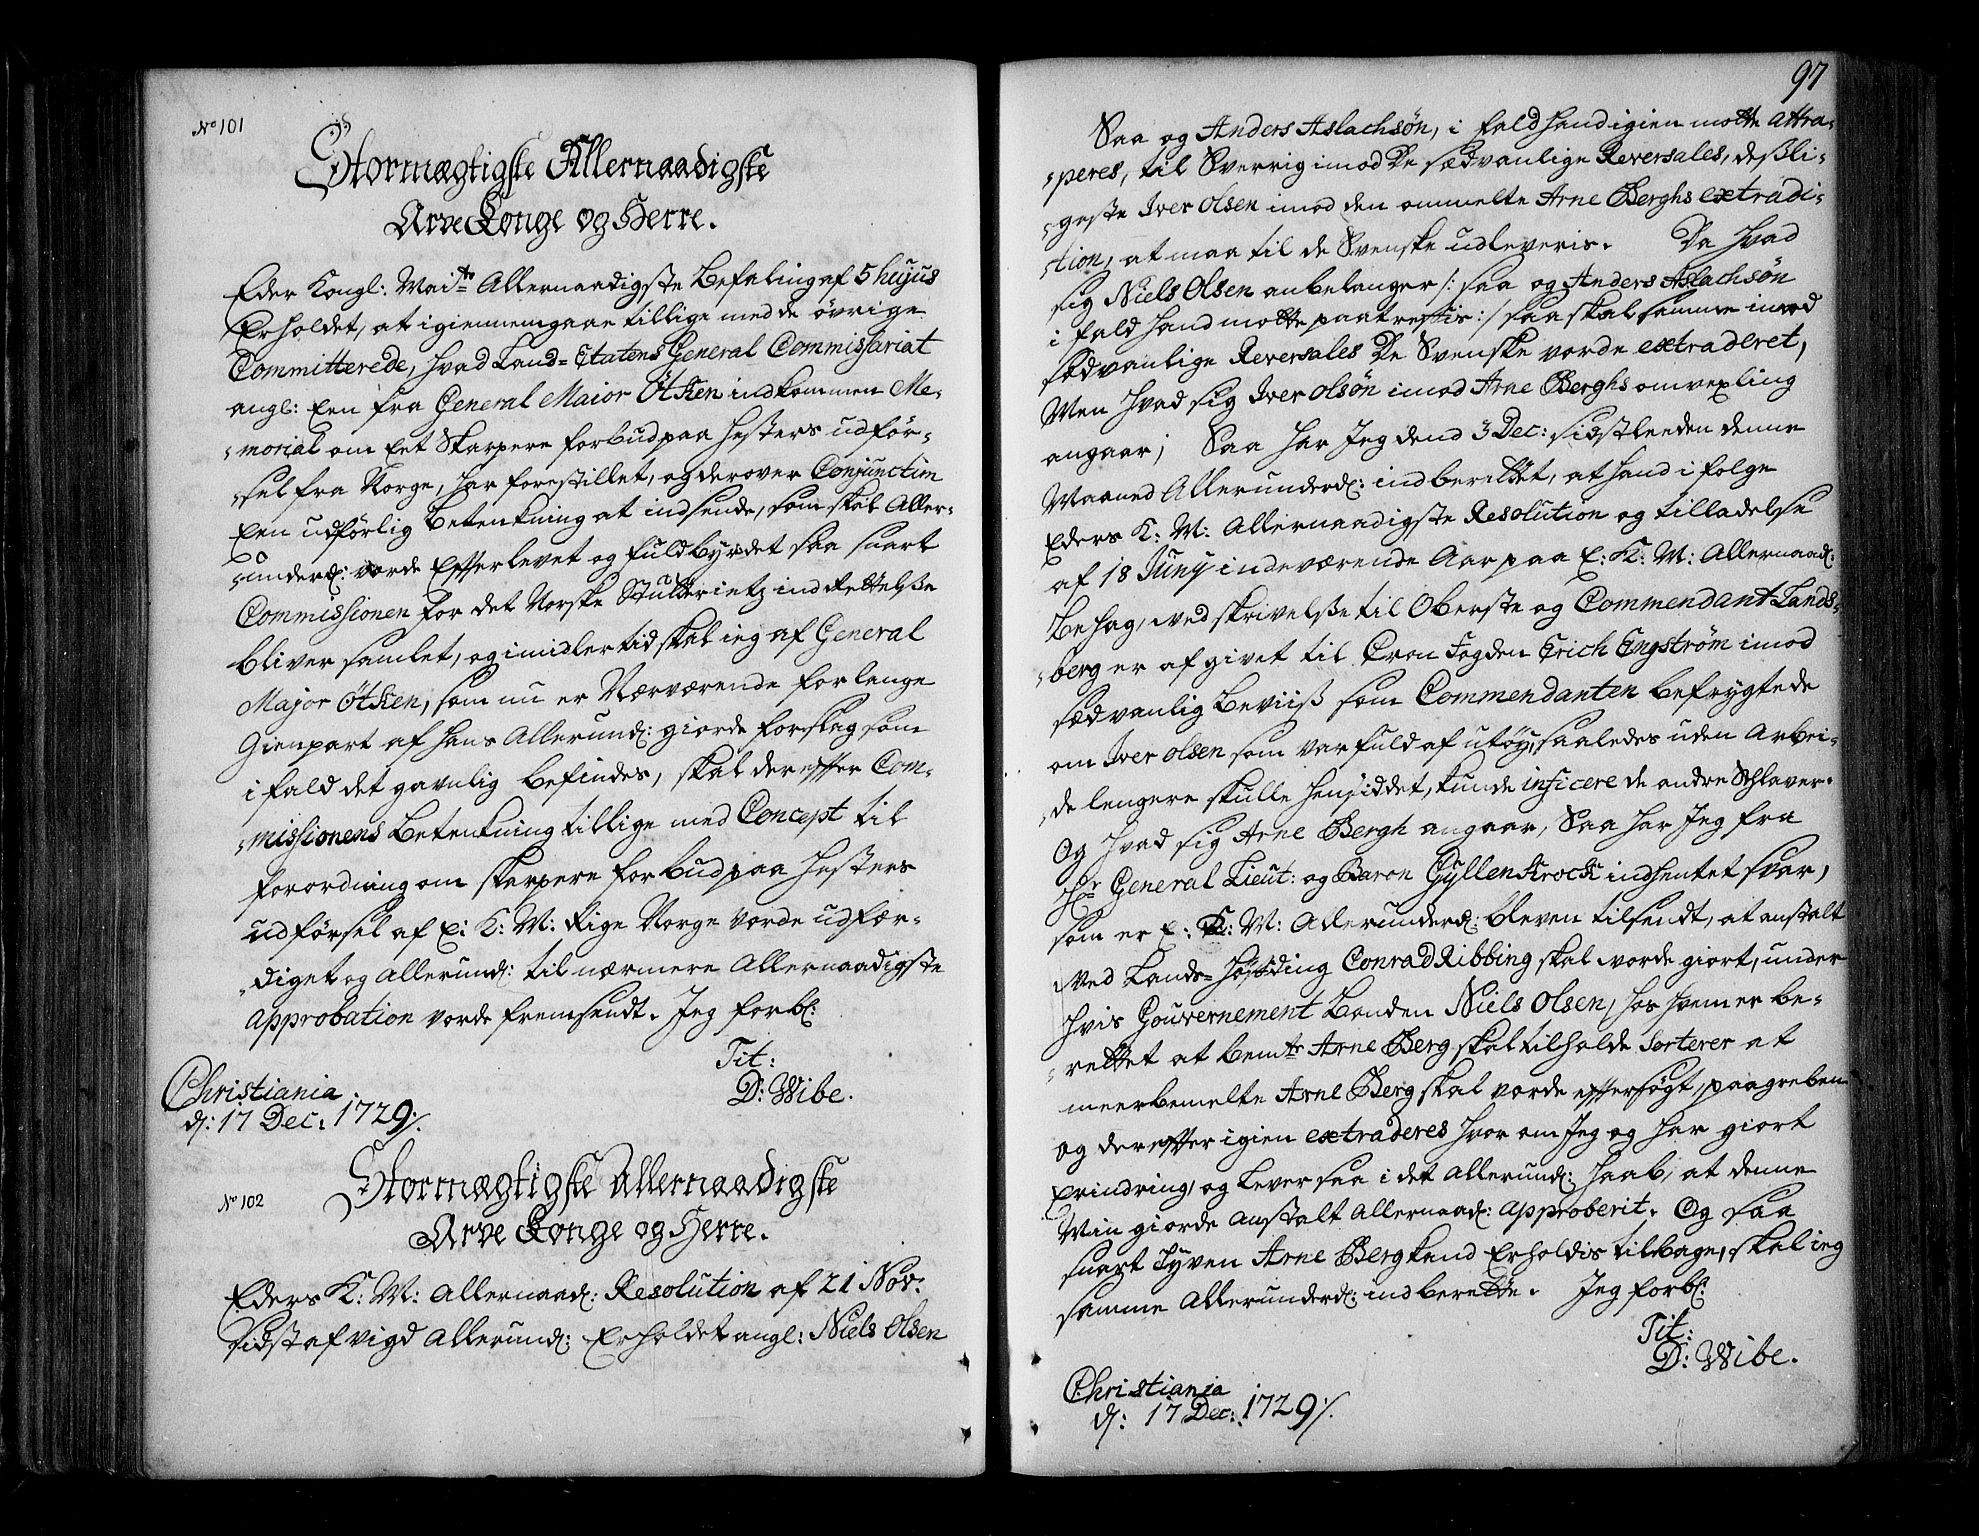 No 101
Stormægtigste Allernaadigste
Arve Konge og Herre.
Eder Kongl: Maits Allernaadigste Befaling af 5 hujus
Erholdet, at igiennemgaae tillige med de øvrige
Committerede, hvad Land-Etatens General Commissariat
angl: Een fra General Maior Ötken indkommen Me-
morial om Eet Skarpere forbud paa hesters udför-
sel fra Norge, har forestillet, og derover Conjunctim
Een udførlig Betenkning at indsende, som skal Aller-
underd: vorde Efterlevet og fuldbyrdet saa snart
Commissionen for det Norske Stutterietz indRettelsse
bliver samlet, og imidlertid skal ieg af General
Major Ötken, som nu er Nærværende forlange
Gienpart af hans Allerund: giorde forslag som
i fald det gavnlig befindes, skal derefter Com-
missionens Betenkning tillige med Concept til
forordning om skarpere forbud paa hesters
udførsel af E: K: M: Rige Norge vorde udfær-
diget og allerund: til nærmere Allernaadigste
Approbation vorde fremsendt. Jeg forbl:
Tit:
D: Wibe.
Christiania
d: 17 Dec: 1729 ⁒
No 102
Stormægtigste Allernaadigste
Arve Konge og Herre.
Eders K: M: allernaad: Resolution af 21 Nov:
sidst afvigd allerund: Erholdet angl: Niels Olsen
97
Saa og Anders Aslachsøn, i fald hand igien motte attra-
peres, til Sverrig imod De sædvanlige Reversales, dessli-
geste Iver Olsen imod den ommelte Arne Berghs extradi-
tion, at maa til de Svenske udleveris. Da hvad
sig Niels Olsen anbelanger /: saa og Anders Aslachsøn
i fald hand motte paatreffis :/ saa skal samme imod
sædvanlige Reversales De Svenske vorde extraderet,
Men hvad sig Iver Olsøn imod Arne Berghs omvexling
angaar; Saa har Jeg dend 3 Dec: sidstleeden denne
Maaned Allerunderd: indberettet, at hand i følge
Eders K: M: Allernaadigste Resolution og tilladelse
af 18 Juny indeværende Aar paa E: K: M: Allernaad:
Behag, ved skrivelsse til Oberste og Commendant Lands-
berg er afgivet til Cron Fogden Erich Engström imod
sædvanlig Beviiss som Commendanten befrygtede
om Iver Olsen som var fuld af utøy, saaledes uden Arbei-
de lengere skulle hensiddet, kunde inficere de andre Schlaver.
Og hvad sig Arne Bergh angaar, Saa har Jeg fra
Hr General Lieut: og Baron Gyllenkrock indhentet svar,
som er E: K: M: Allerunderd: bleven tilsendt, at anstalt
ved Lands-Höfding Conrad Ribbing skal vorde giort, under
hvis Gouvernement Bonden Niels Olsen, hos hvem er be-
rettet at bemte Arne Berg skal tilholde Sorterer at
meerbemelte Arne Berg skal vorde eftersøgt, paagreben
og derefter igien extraderes hvorom Jeg og har giort
Erindring, og Lever saa i det allerund: haab, at denne
Min giorde Anstalt allernaad: approberit. Og saa
snart Tyven Arne Berg kand Erholdis tilbage, skal ieg
samme Allerunderd: indberette. Jeg forbl:
Tit:
D: Wibe.
Christiania
d: 17 Dec: 1729 ⁒